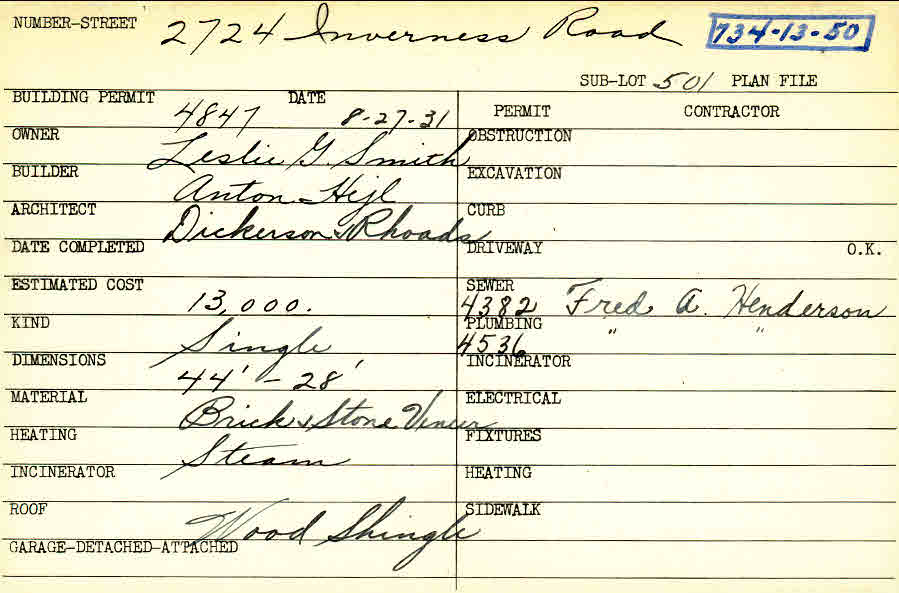 NUMBER-STREET 2724 Inverness Road 734-13-50
SUB-LOT 501 PLAN FILE
BUILDING PERMIT 4847 DATE 8-27-31 PERMIT CONTRACTOR
OWNER Leslie G. Smith OBSTRUCTION
BUILDER Anton Hejl EXCAVATION
ARCHITECT Dickerson & Rhoads CURB
DATE COMPLETED DRIVEWAY O.K.
ESTIMATED COST 13,000. SEWER 4382 Fred A. Henderson
KIND Single PLUMBING 4536 " "
DIMENSIONS 44' - 28' INCINERATOR
MATERIAL Brick & Stone Veneer ELECTRICAL
HEATING Steam FIXTURES
INCINERATOR HEATING
ROOF Wood Shingle SIDEWALK
GARAGE-DETACHED-ATTACHED